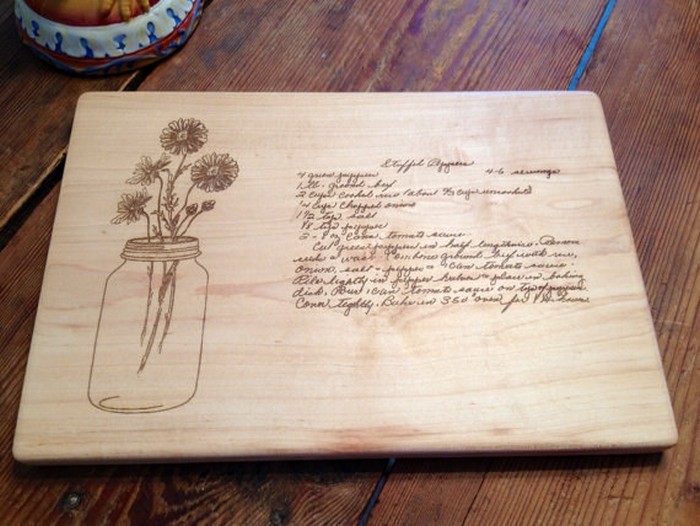 Stuffed Peppers
4-6 servings
4 green peppers
1 lb. ground beef
2 cups cooked rice (about 2/3 cup uncooked)
1/4 cup chopped onion
1 1/2 tsp salt
1/8 tsp pepper
2 - 8 oz cans tomato sauce
Cut green peppers in half lengthwise. Remove
seeds & wash. Combine ground beef with rice,
onion, salt & pepper & 1 can tomato sauce.
Pile lightly in pepper halves & place in baking
dish. Pour 1 can tomato sauce on top of peppers.
Cover tightly. Bake in 350° oven for 1